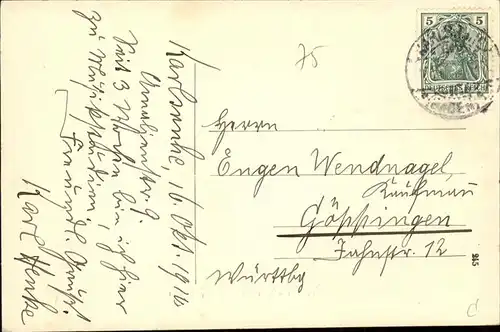 Karlsruhe, 16. Okt. 1912
Amalienstr. 9
Seit 3 Wochen bin ich hier
zu Musikstudien,
Freundl. Gruß!
Karl Henke
75
Herrn
Eugen Wendnagel,
Kaufmann
Göppingen
Jahnstr. 12
Württbg
5 5
DEUTSCHES REICH
(BADEN)
915